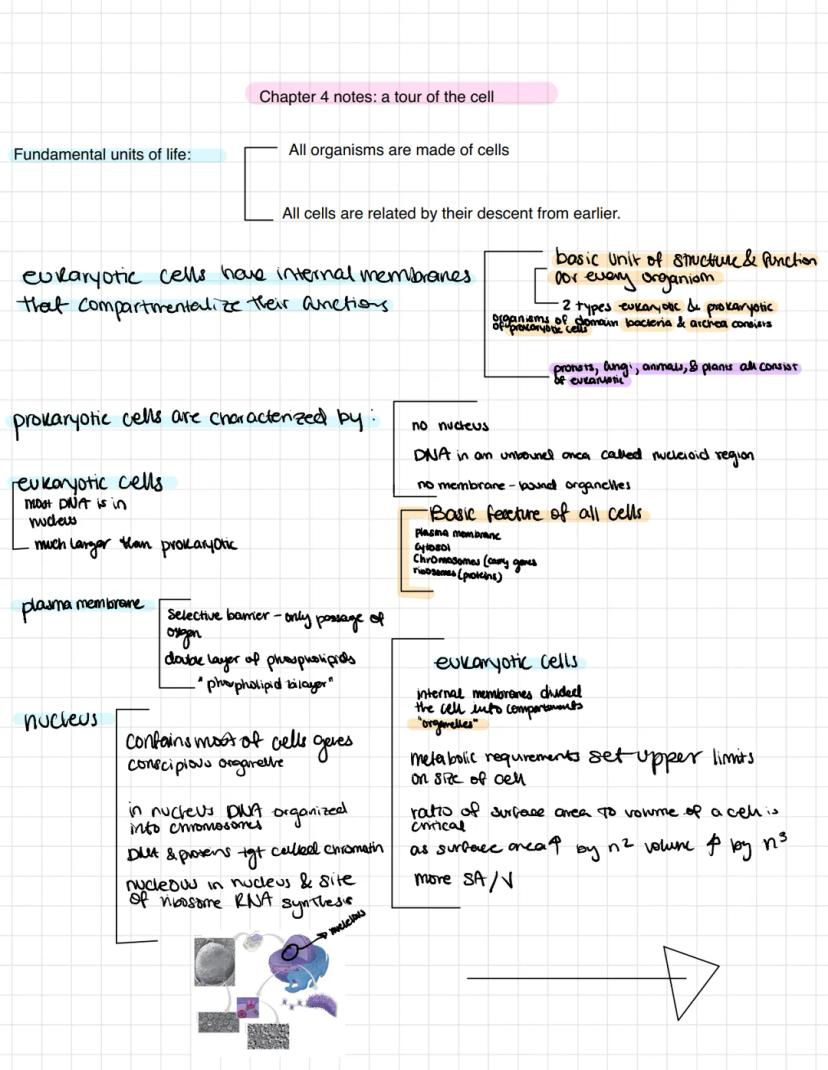 Chapter 4 notes: a tour of the cell
Fundamental units of life:
All organisms are made of cells
All cells are related by their descent from earlier.
eukaryotic cells have internal membranes
that compartmentalize their functions
basic unit of structure & function
for every organism
2 types eukaryotic & prokaryotic
organisms of domain bacteria & archea consists
of prokaryotic cells
protists, fungi, animals, & plants all consist
of eukariotic
prokaryotic cells are characterized by:
no nucleus
DNA in an unbound area called nucleioid region
no membrane-bound organelles
eukaryotic cells
most DNA is in
nucleus
much larger than prokaryotic
Basic feature of all cells
plasma membrane
cytosol
Chromosomes (carry genes
ribosomes (proteins)
plasma membrane
selective barrier - only passage of
oxygen
double layer of phospholipids
"phospholipid bilayer"
eukaryotic cells
internal membranes divided
the cell into compartments
"organelles"
metabolic requirements set upper limits
on size of cell
ratio of surface area to volume of a cell is
critical
as surface area ↑ by n² volume ↑ by n³
more SA/V
nucleus
contains most of cells genes
conscipious organelle
in nucleus DNA organized
into chromosomes
DNA & proteins tgt called chromatin
nucleous in nucleus & site
of ribosome RNA synthesis
nucleious